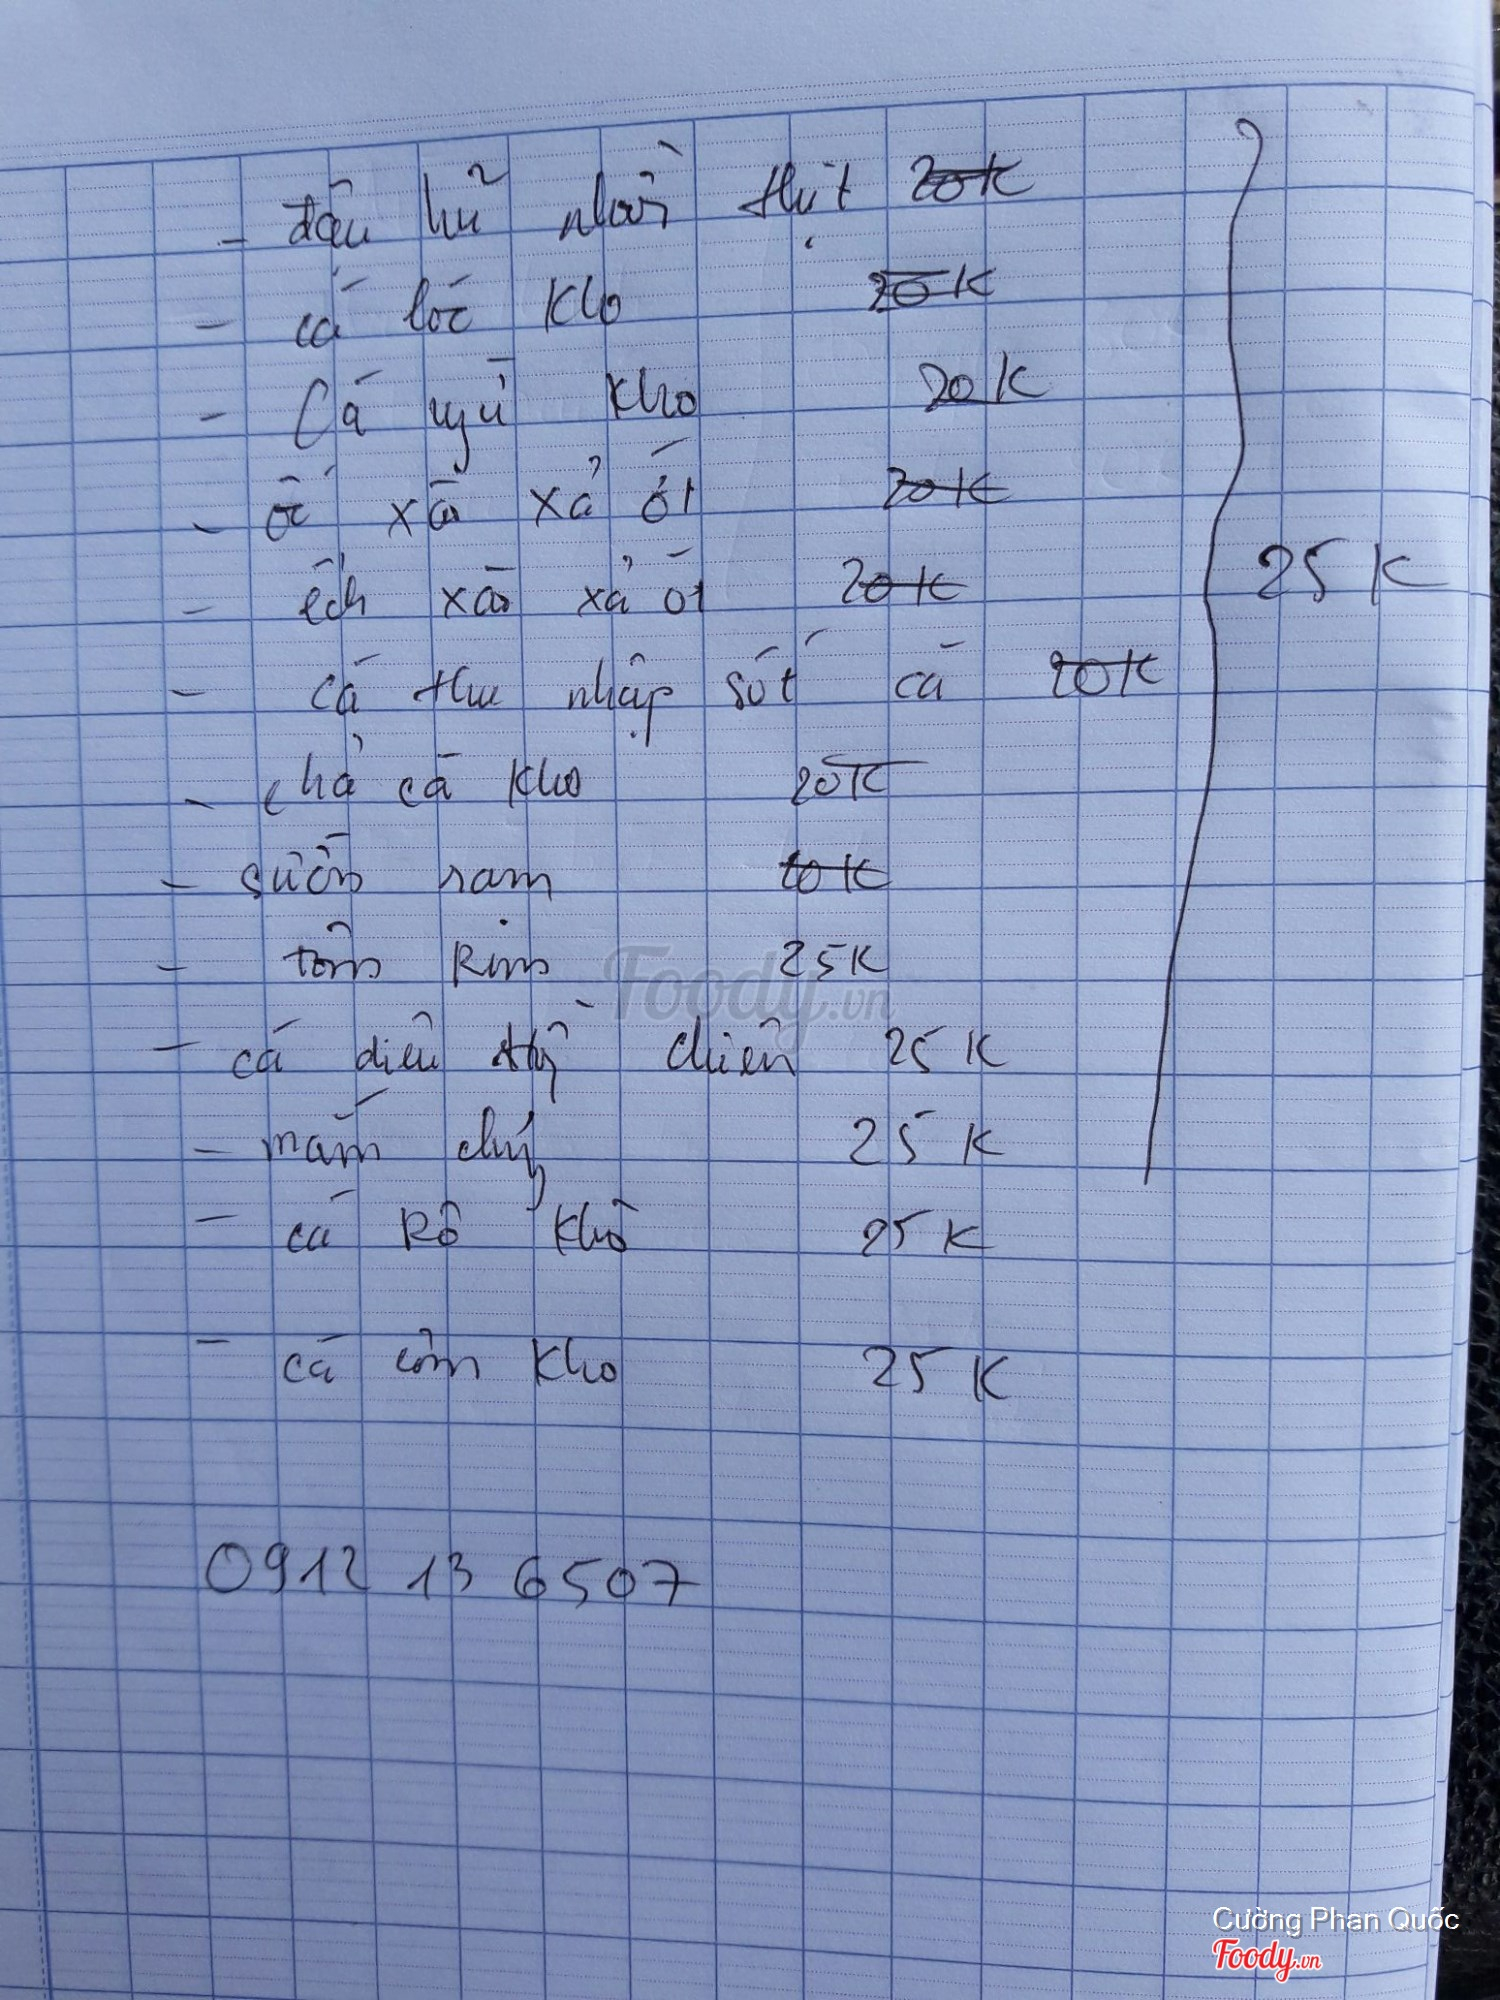 - đậu hũ nhồi thịt 20K
- cá lóc kho 20K
- Cá ngừ kho 20K
- ốc xào xả ớt 20K
- ếch xào xả ớt 20K
- cá thu nhập sốt cà 20K
- chả cá kho 20K
- sườn ram 20K
- tôm Rim 25K
- cá diêu chiên 25K
- mắm 25K
- cá Rô khô 25K
- cá cơm kho 25K
25K
0912 13 6507
Foody.vn
Cường Phan Quốc
Foody.vn